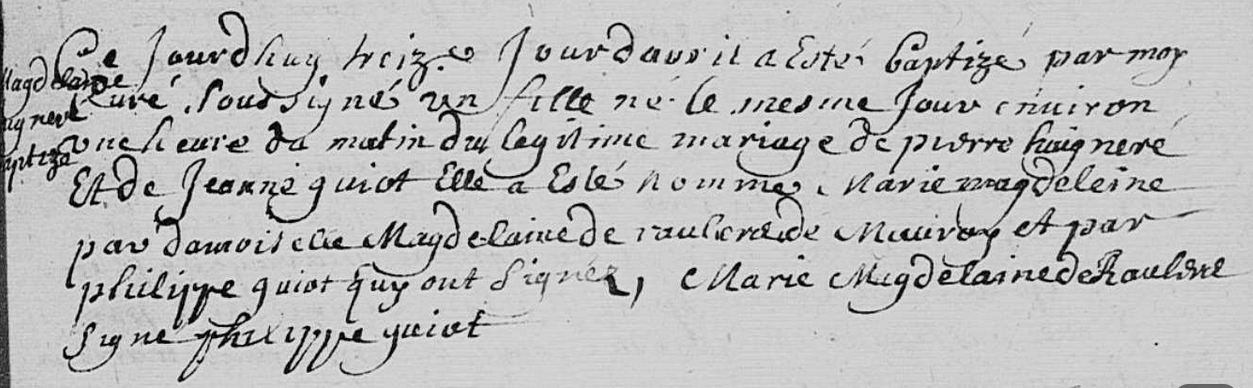 Magdelaine
aigneré
aptizé
Ce Jourdhuy treize Jour davril a Esté baptizé par moy
Curé soussigné un fille né le mesme Jour environ
une heure du matin du legitime mariage de pierre haigneré
Et de Jeanne guiot Elle a Esté nomme Marie magdeleine
par damoiselle Magdelaine de de Mauroy et par
philippe guiot quy ont signez, Marie Magdelaine de Raulere
signé philippe guiot